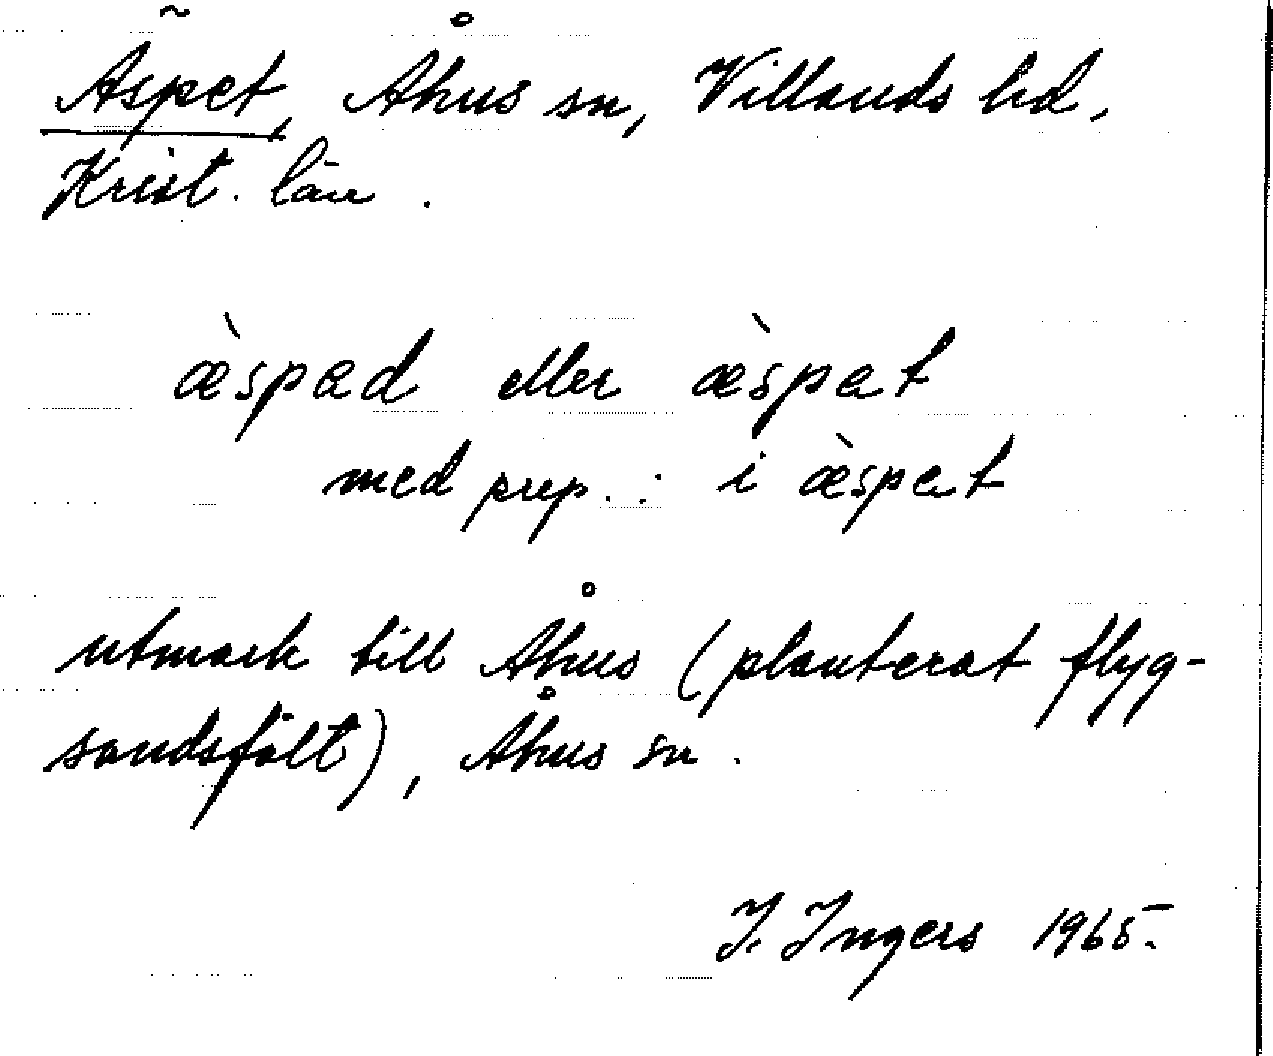 Äspet, Åhus sn, Villands hd,
Krist. län.
æ̀spad eller æ̀spat
med prep.: i æ̀spat
utmark till Åhus (planterat flyg-
sandsfält), Åhus sn.
I. Ingers 1965.